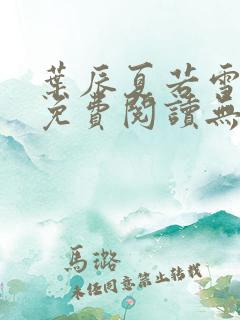 葉辰夏若雪
免費閱讀無
馬璐
未經同意禁止轉載